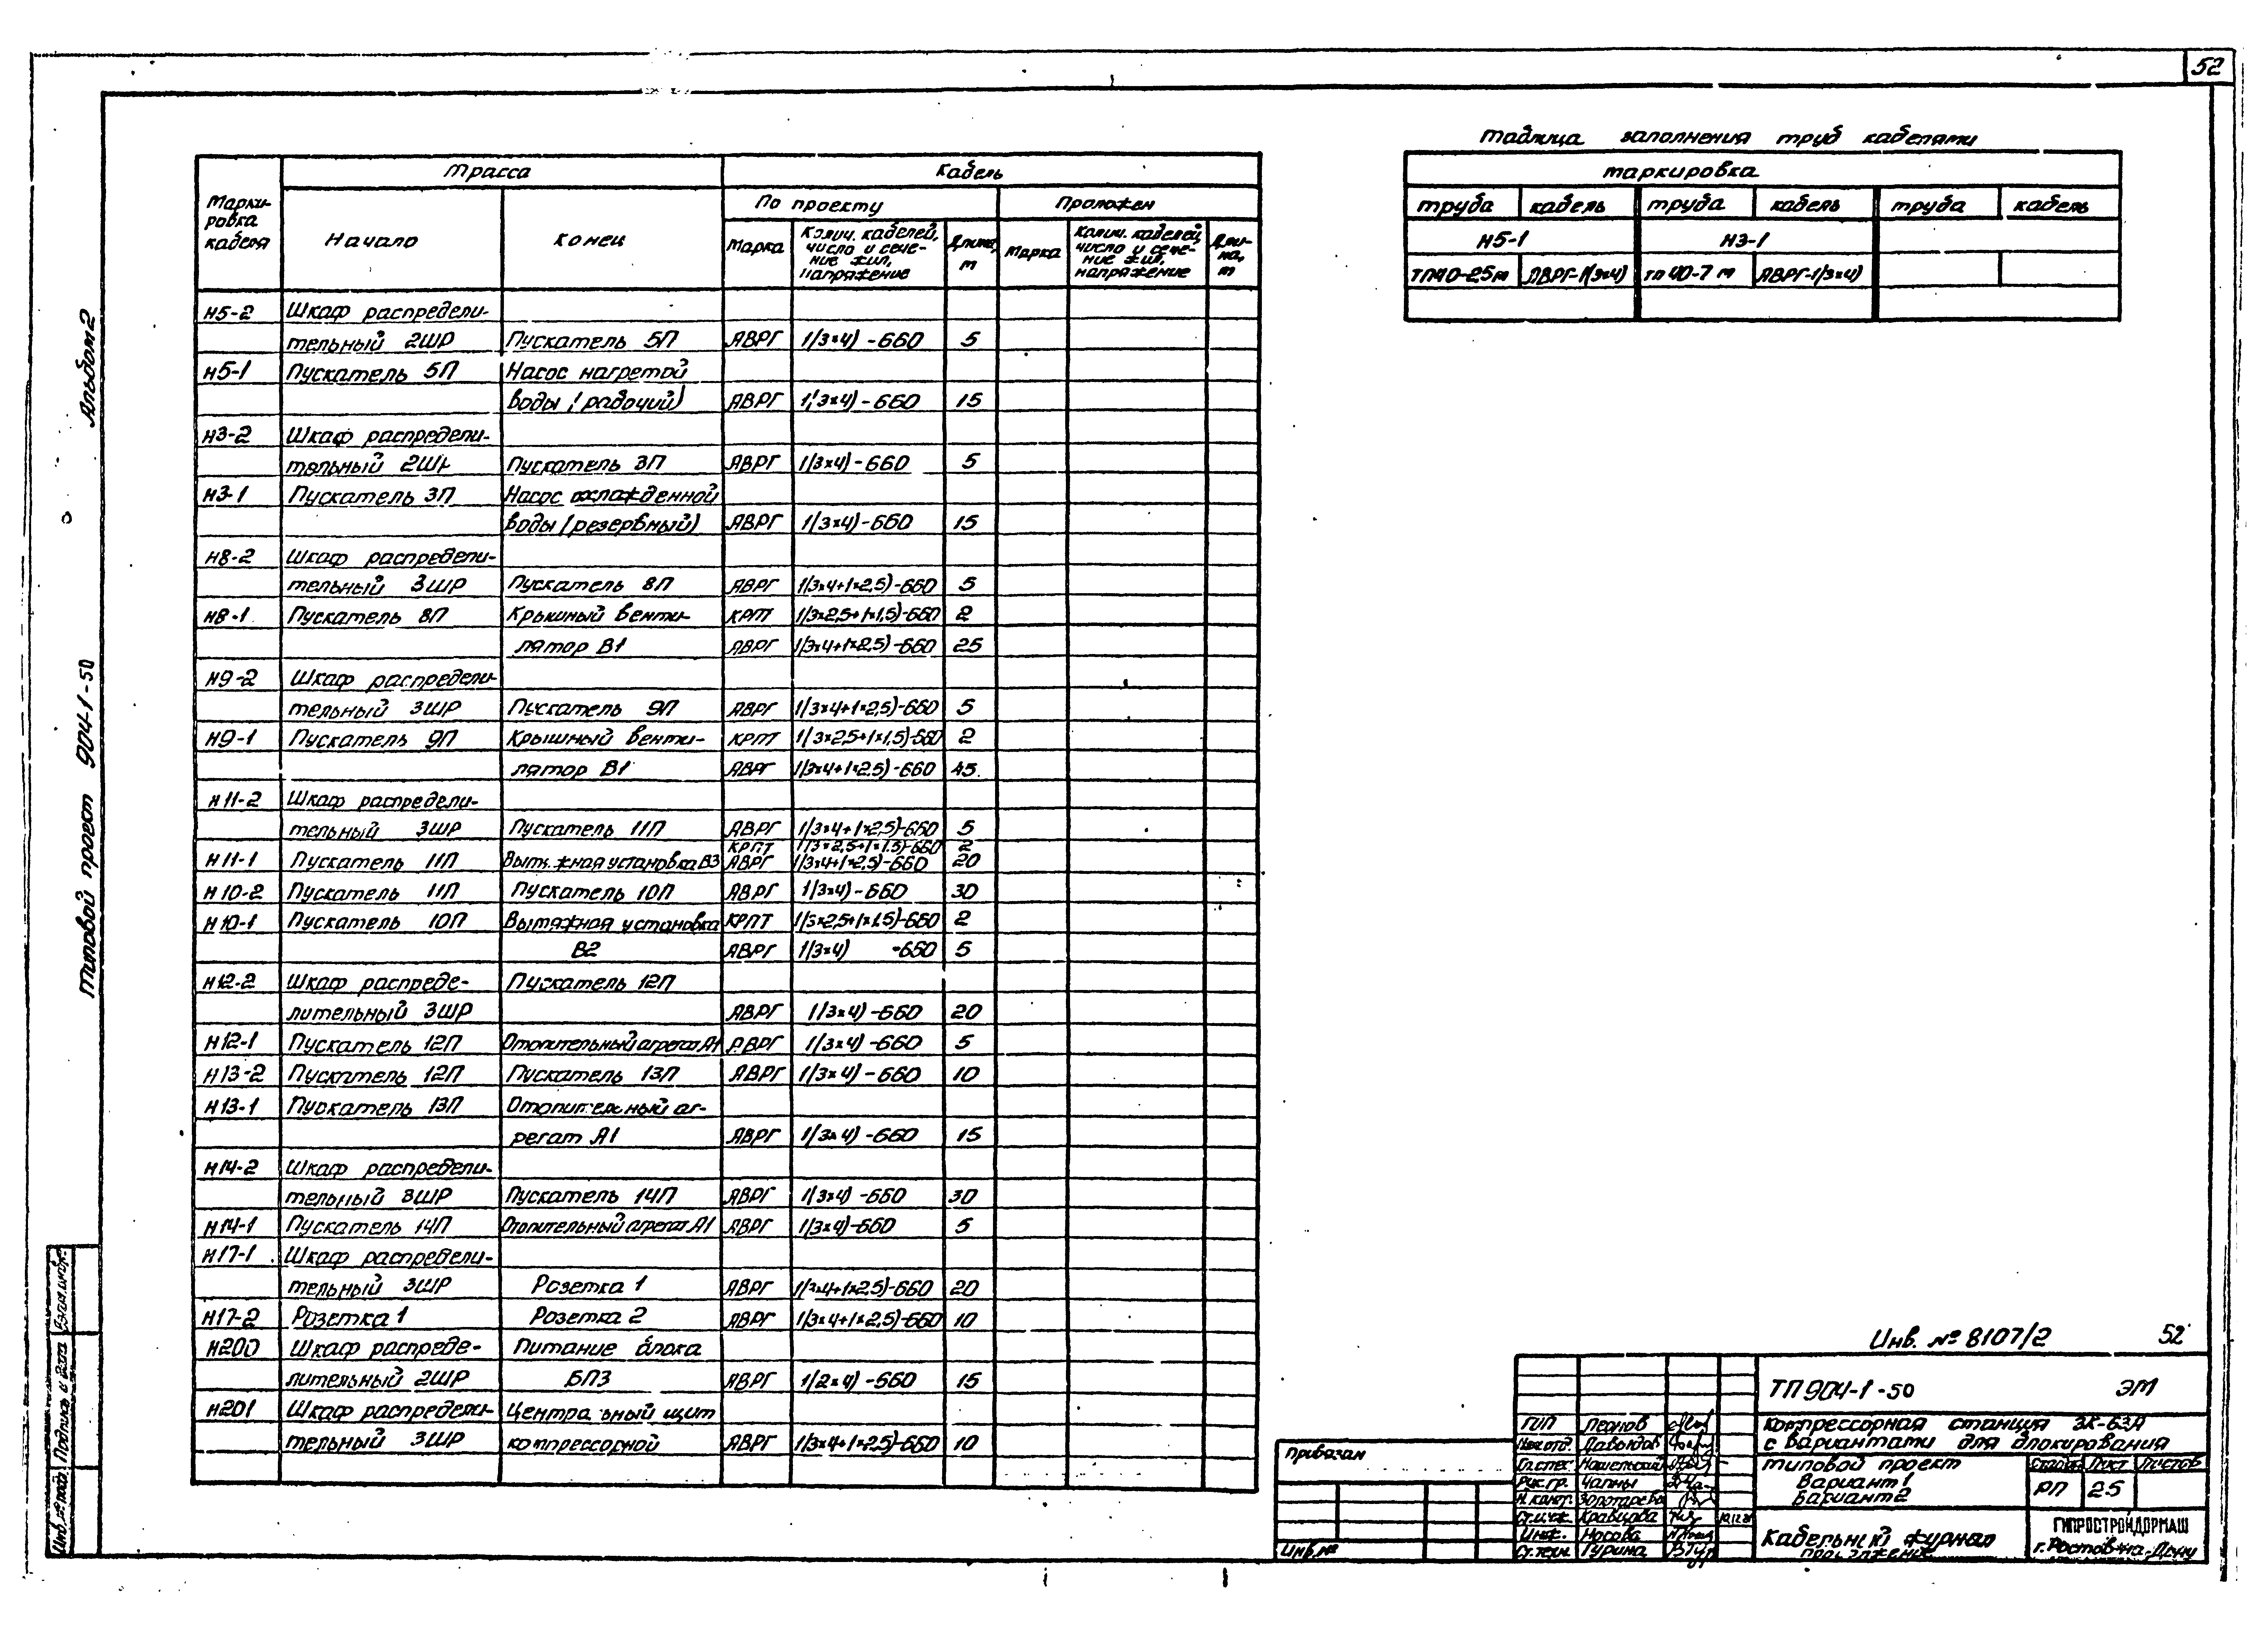 52
Таблица заполнения труб кабелями
Маркировка
труба кабель труба кабель труба кабель
Н5-1 Н3-1
ТП40-2,5м АВРГ-1(3×4) ТП 40-7 м АВРГ-1(3×4)
Марки-
ровка
кабеля
Трасса
Кабель
Начало
Конец
По проекту
Проложен
Марка
Колич. кабелей,
число и сече-
ние жил,
напряжение
Длина,
м
Марка
Колич. кабелей,
число и сече-
ние жил,
напряжение
Дли-
на,
м
Н5-2 Шкаф распредели-
тельный 2ШР Пускатель 5П АВРГ 1(3×4)-660 5
Н5-1 Пускатель 5П Насос нагретой
воды (рабочий) АВРГ 1(3×4)-660 15
Н3-2 Шкаф распредели-
тельный 2ШР Пускатель 3П АВРГ 1(3×4)-660 5
Н3-1 Пускатель 3П Насос охлажденной
воды (резервный) АВРГ 1(3×4)-660 15
Н8-2 Шкаф распредели-
тельный 3ШР Пускатель 8П АВРГ 1(3×4+1×2,5)-660 5
Н8-1 Пускатель 8П Крышный венти- КРПТ 1(3×2,5+1×1,5)-660 2
лятор В1 АВРГ 1(3×4+1×2,5)-660 25
Н9-2 Шкаф распредели-
тельный 3ШР Пускатель 9П АВРГ 1(3×4+1×2,5)-660 5
Н9-1 Пускатель 9П Крышный венти- КРПТ 1(3×2,5+1×1,5)-660 2
лятор В1 АВРГ 1(3×4+1×2,5)-660 45
Н11-2 Шкаф распредели-
тельный 3ШР Пускатель 11П АВРГ 1(3×4+1×2,5)-660 5
КРПТ 1(3×2,5+1×1,5)-660 2
Н11-1 Пускатель 11П Вытяжная установка В3 АВРГ 1(3×4+1×2,5)-660 20
Н10-2 Пускатель 11П Пускатель 10П АВРГ 1(3×4)-660 30
Н10-1 Пускатель 10П Вытяжная установка КРПТ 1(3×2,5+1×1,5)-660 2
В2 АВРГ 1(3×4) -660 5
Н12-2 Шкаф распреде- Пускатель 12П
лительный 3ШР АВРГ 1(3×4)-660 20
Н12-1 Пускатель 12П Отопительный агрегат А1 АВРГ 1(3×4)-660 5
Н13-2 Пускатель 12П Пускатель 13П АВРГ 1(3×4)-660 10
Н13-1 Пускатель 13П Отопительный аг-
регат А1 АВРГ 1(3×4)-660 15
Н14-2 Шкаф распредели-
тельный 3ШР Пускатель 14П АВРГ 1(3×4)-660 30
Н14-1 Пускатель 14П Отопительный агрегат А1 АВРГ 1(3×4)-660 5
Н17-1 Шкаф распредели-
тельный 3ШР Розетка 1 АВРГ 1(3×4+1×2,5)-660 20
Н17-2 Розетка 1 Розетка 2 АВРГ 1(3×4+1×2,5)-660 10
Н200 Шкаф распреде- Питание блока
лительный 2ШР БПЗ АВРГ 1(2×4)-660 15
Н201 Шкаф распредели- Центральный щит
тельный 3ШР компрессорной АВРГ 1(3×4+1×2,5)-660 10
Альбом 2
Типовой проект 904-1-50
Взам. инв. №
Подпись и дата
Инв. № подл.
Инв. № 8107/2 52
ТП 904-1-50 ЭМ
Компрессорная станция 3К-63А
с вариантами для блокирования
Типовой проект
Вариант 1
Вариант 2
Стадия Лист Листов
РП 25
Кабельный журнал
продолжение
ГИПРОСТРОЙДОРМАШ
г. Ростов-на-Дону
ГИП Леонов
Нач. отд. Давыдов
Гл. спец.
Рук. гр. Чапны
Н. конт. Золотарева
Ст. инж. Кравцова
Инж. Носова
Ст. техн. Гурина
Привязан
Инв. №